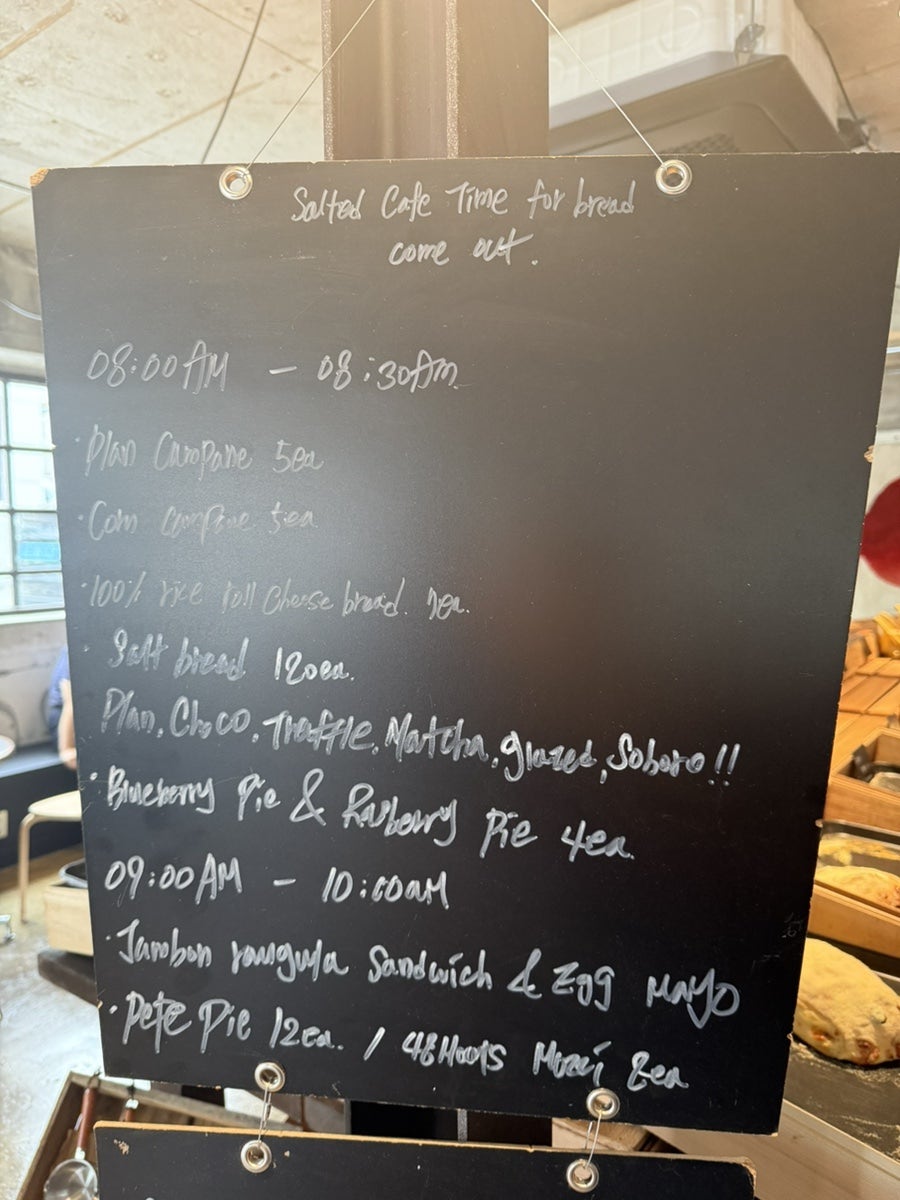 Salted Cafe Time for bread
come out.
08:00AM - 08:30Am
· Plan Campane 5ea
· Corn campane 5ea
· 100% rice roll cheese bread. 7ea.
· Salt bread 120ea.
Plan, Choco, Truffle, Matcha, glazed, Soboro!!
· Blueberry Pie & Rasberry Pie 4ea.
09:00AM - 10:00aM
· Jambon Sandwich & Egg MAYO
· Pete Pie 12ea. / 48Hours 8ea